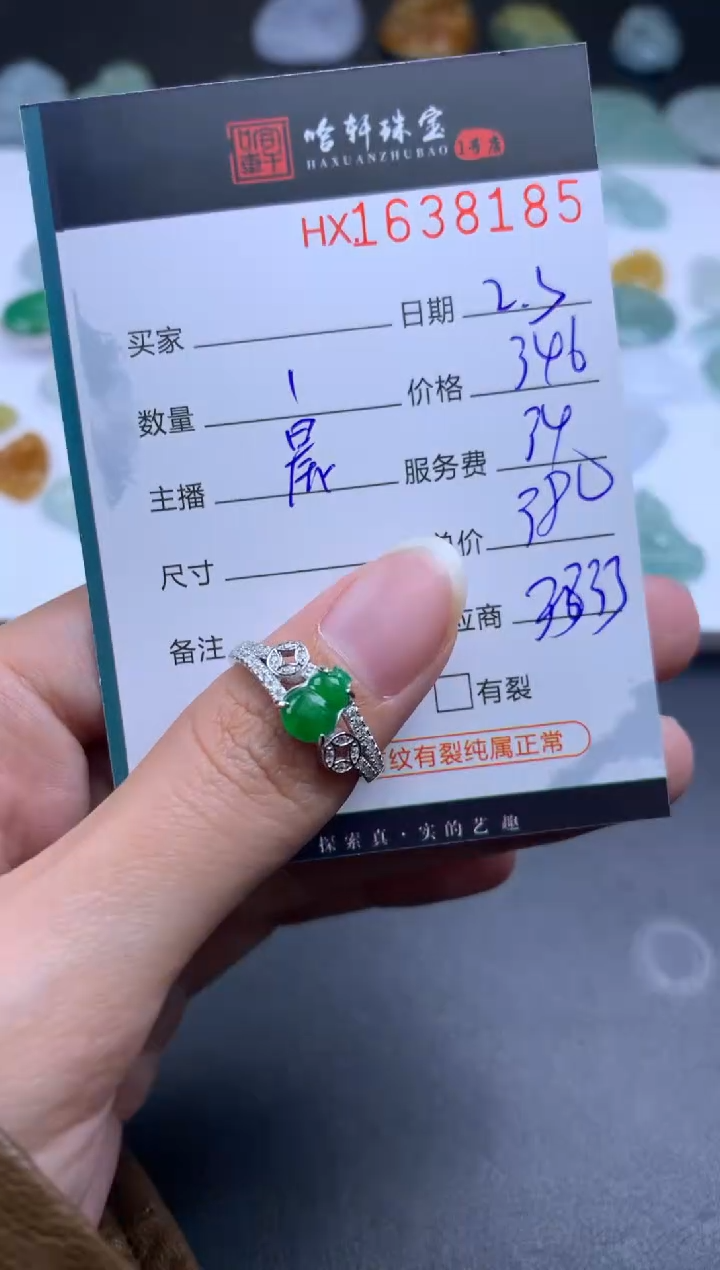 哈轩珠宝
HAXUANZHUBAO 1号店
HX.1638185
买家 日期 2.5
数量 1 价格 346
主播 晨 服务费 34
尺寸 单价 380
备注 应商 3333
有裂
纹有裂纯属正常
探索真·实的艺趣